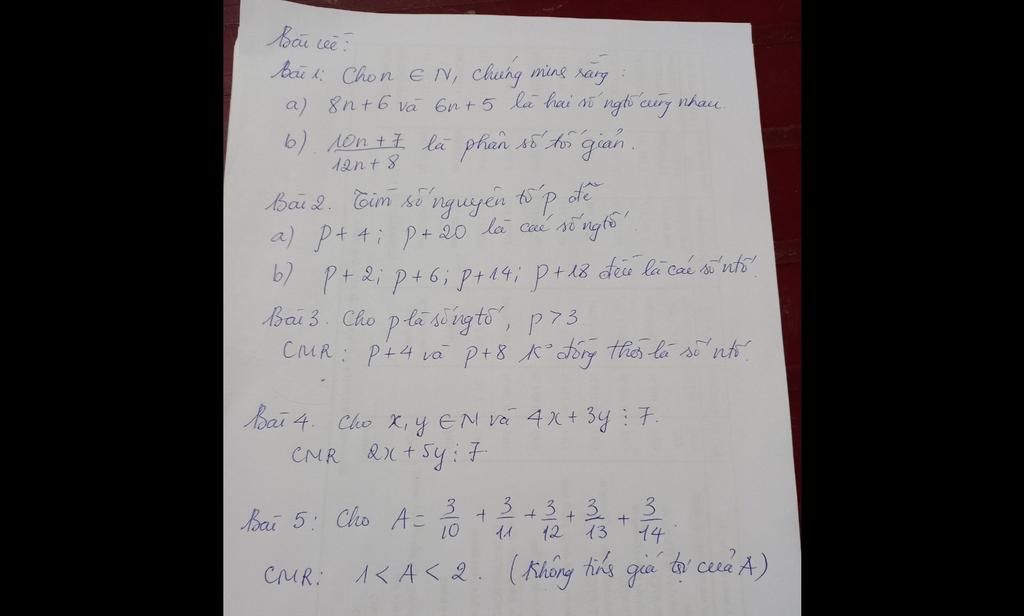 Bài về:
Bài 1: Cho n ∈ N, chứng minh rằng:
a) 8n+6 và 6n+5 là hai số ngtố cùng nhau.
b) \frac{10n+7}{12n+8} là phân số tối giản.
Bài 2. Tìm số nguyên tố p để
a) p+4; p+20 là các số ngtố.
b) p+2; p+6; p+14; p+18 đều là các số ntố.
Bài 3. Cho p là số ngtố, p>3
CMR: p+4 và p+8 k° đồng thời là số ntố.
Bài 4. Cho x, y ∈ N và 4x+3y ⋮ 7.
CMR 2x+5y ⋮ 7
Bài 5: Cho A = \frac{3}{10} + \frac{3}{11} + \frac{3}{12} + \frac{3}{13} + \frac{3}{14}.
CMR: 1 < A < 2. (Không tính giá trị của A)